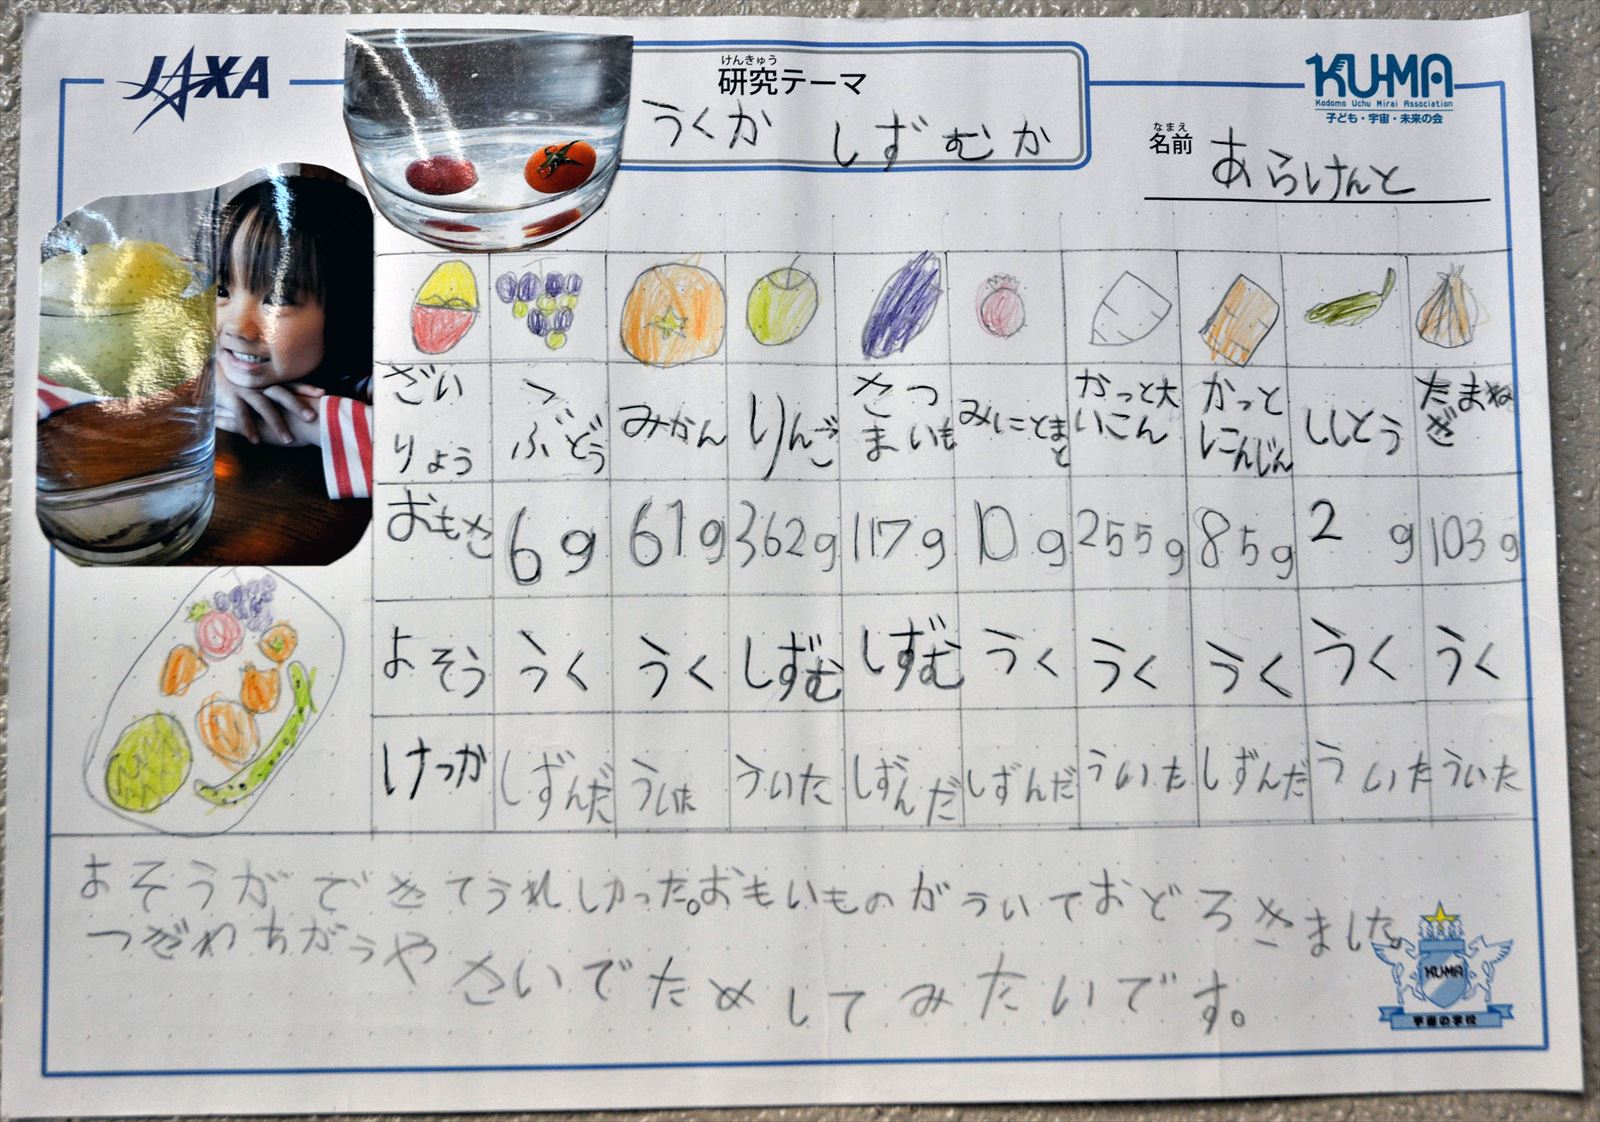 JAXA
けんきゅう
研究テーマ
うくか しずむか
KU-MA
Kodomo Uchu Mirai Association
子ども・宇宙・未来の会
なまえ
名前 あらけんと
ざいりょう ぶどう みかん りんご さつまいも みにとまと かっと大いこん かっとにんじん ししとう たまねぎ
おもさ 6g 61g 362g 117g 10g 255g 85g 2g 103g
よそう うく うく しずむ しずむ うく うく うく うく うく
けっか しずんだ ういた ういた しずんだ しずんだ ういた しずんだ ういた ういた
よそうができてうれしかった。おもいものがういておどろきました。
つぎわちがうやさいでためしてみたいです。
KU-MA
宇宙の学校